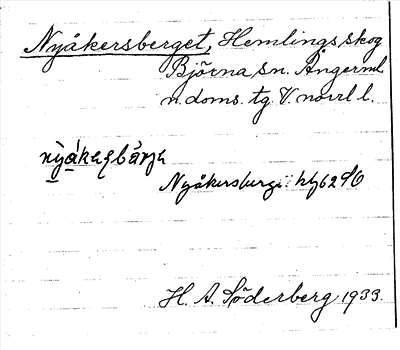 Nyåkersberget, Hemlings skog
Björna sn. Ångerml.
n. doms. tg. V. norrl l.
Nyåkersberge
H. A. Söderberg 1933.